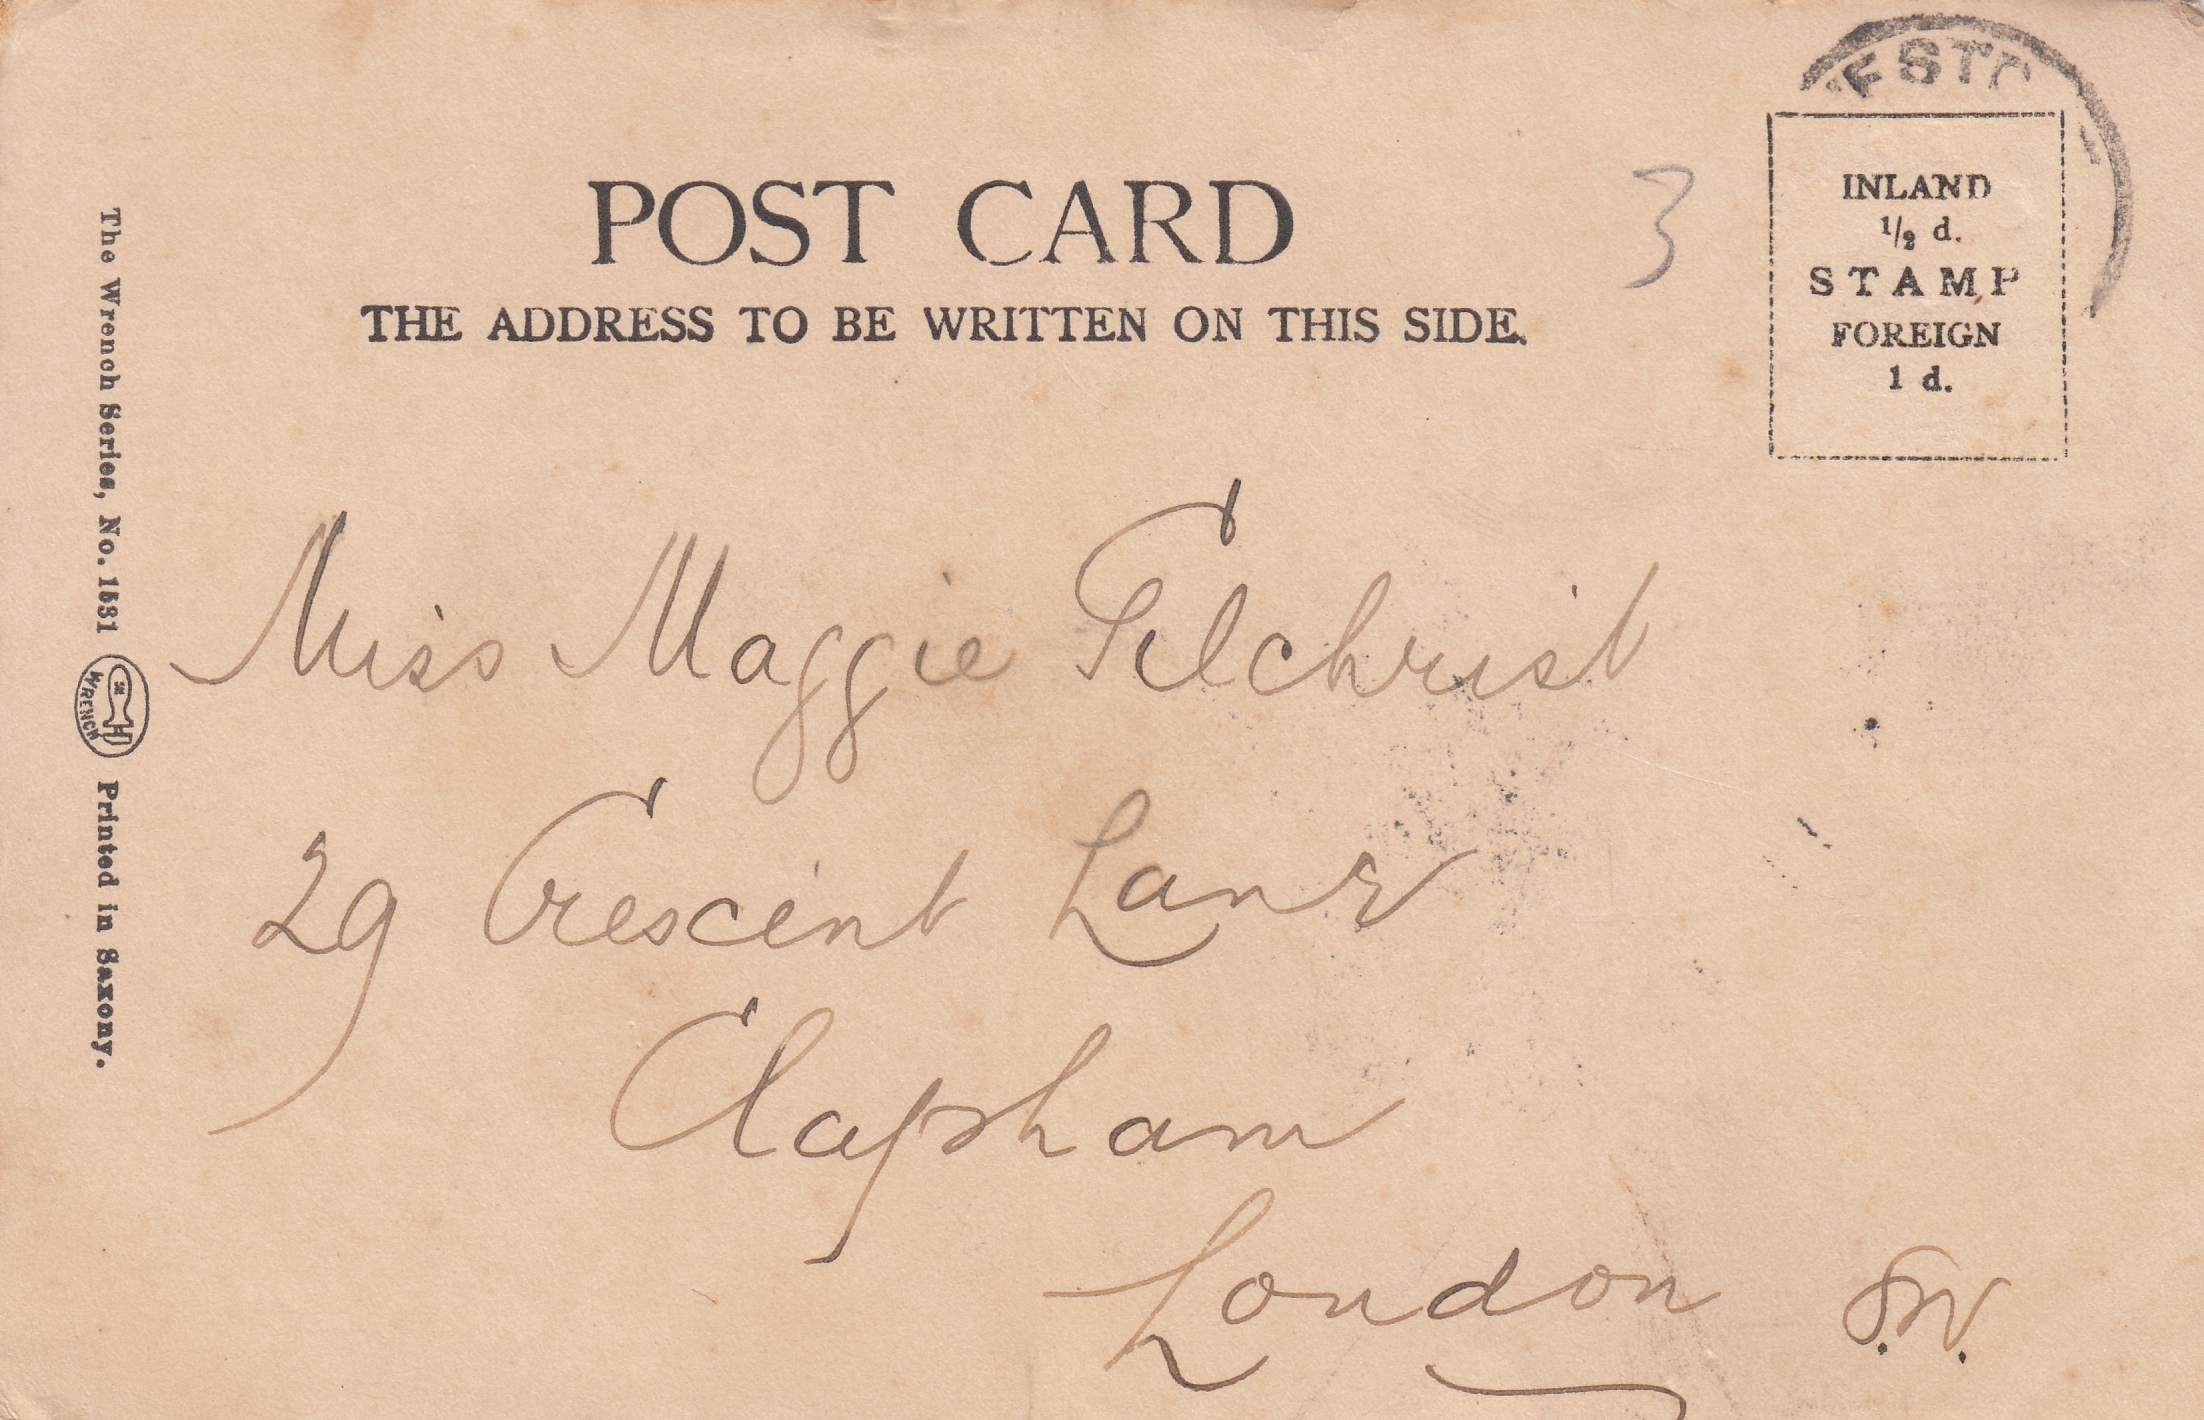 POST CARD
THE ADDRESS TO BE WRITTEN ON THIS SIDE.
INLAND
1/2 d.
STAMP
FOREIGN
1 d.
3
Miss Maggie Gilchrist
29 Crescent Lane
Clapham
London S.W.
The Wrench Series, No. 1531
WRENCH
Printed in Saxony.